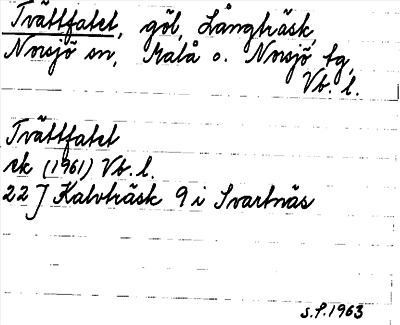 Tvättfatet, göl, Långträsk,
Norsjö sn, Malå o. Norsjö tg,
Vb. l.
Tvättfatet
rk (1961) Vb. l.
22 J Kalvträsk 9 i Svartnäs
S.f. 1963